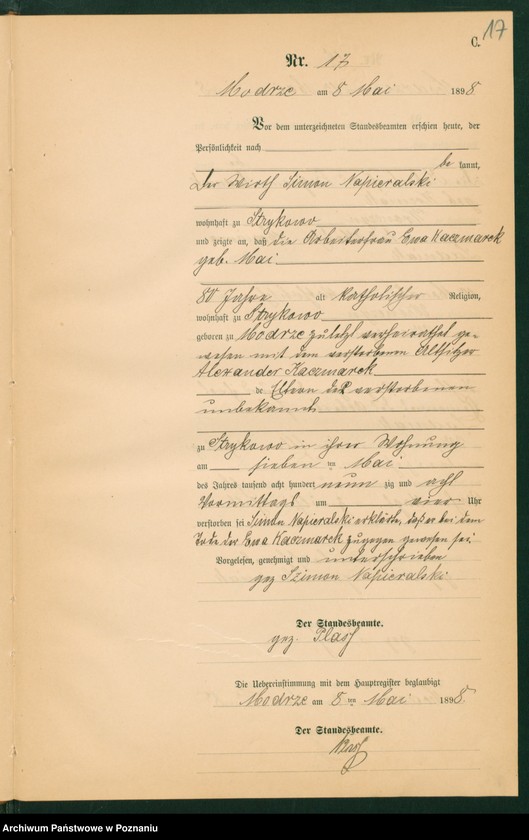 17
C.
Nr. 17
Modrze am 8 Mai 1898
Vor dem unterzeichneten Standesbeamten erschien heute, der
Persönlichkeit nach
be kannt,
Der Wirth Simon Napieralski
wohnhaft zu Strykowo
und zeigte an, daß die Arbeiterfrau Ewa Kaczmarek
geb. Mai
80 Jahre alt katholischer Religion,
wohnhaft zu Strykowo
geboren zu Modrze zuletzt verheirathet ge-
wesen mit dem verstorbenen Altsitzer
Alexander Kaczmarek
de Eltern der verstorbenen
unbekannt
zu Strykowo in ihrer Wohnung
am sieben ten Mai
des Jahres tausend acht hundert neun zig und acht
Vormittags um vier Uhr
verstorben sei Simon Napieralski erklärte, daß er bei dem
Tode der Ewa Kaczmarek zugegen gewesen sei.
Vorgelesen, genehmigt und unterschrieben
gez Szimon Napieralski
Der Standesbeamte.
gez.
Die Uebereinstimmung mit dem Hauptregister beglaubigt
Modrze am 8 ten Mai 1898.
Der Standesbeamte.
Archiwum Państwowe w Poznaniu